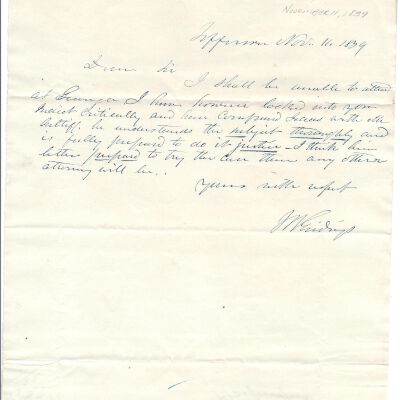 November 11, 1839
Jefferson Nov. 11. 1839
Dear Sir
I shall be unable to attend
at Granger I have however looked into your
critically and have compared Ideas with Mr
he understands the subject thoroughly and
is fully prepared to do it justice – I think him
better prepared to try the case than any other
attorney will be..
Yours with respt
J R Giddings